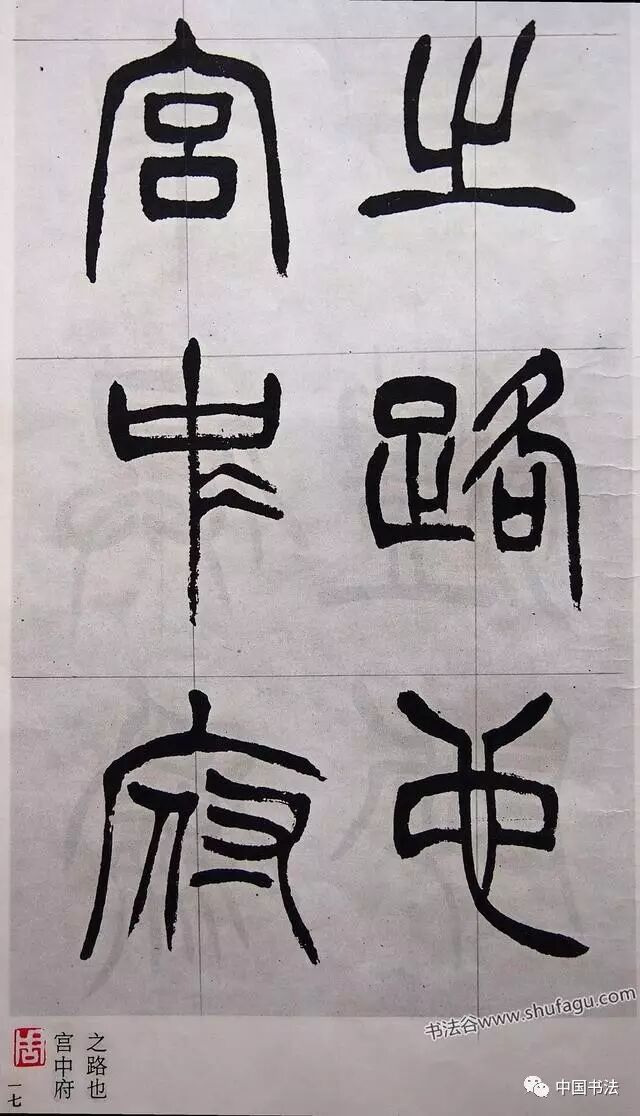 之路也
宫中府
之路也
宫中府
一七
书法谷www.shufagu.com
中国书法